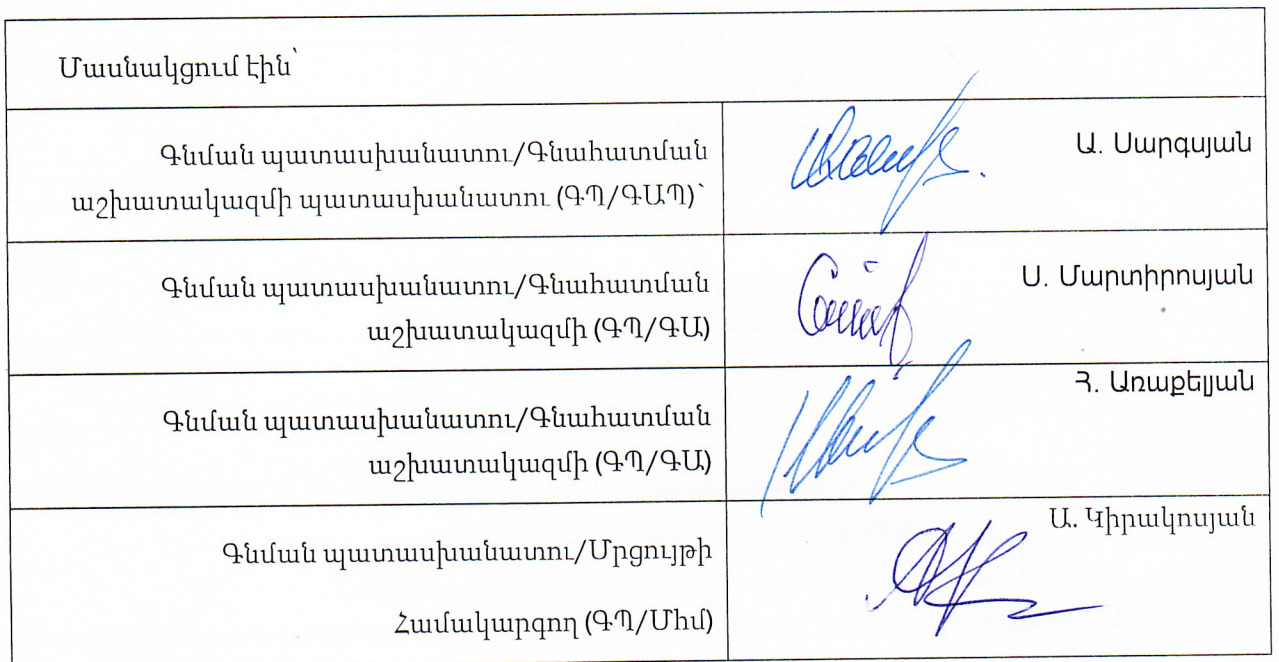 Մասնակցում էին՝
Գնման պատասխանատու/Գնահատման
աշխատակազմի պատասխանատու (ԳՊ/ԳԱՊ)՝
Ա. Սարգսյան
Գնման պատասխանատու/Գնահատման
աշխատակազմի (ԳՊ/ԳԱ)
Ս. Մարտիրոսյան
Գնման պատասխանատու/Գնահատման
աշխատակազմի (ԳՊ/ԳԱ)
Հ. Առաքելյան
Գնման պատասխանատու/Մրցույթի
Համակարգող (ԳՊ/Միմ)
Ա. Կիրակոսյան